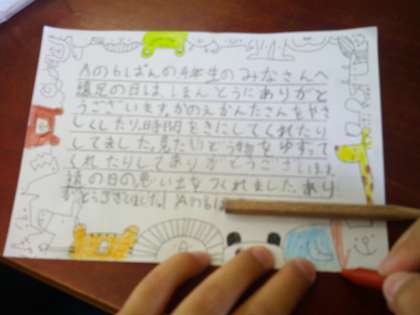 Aのもしはんの4年生のみなさんへ
遠足の日はほんとうにありがと
うございます。かのえかんたさんをやさ
しくしたり、時間をきにしてくれたり
してました。見たいどう物をゆずって
くれたりしてありがとうございます
の日の思い出をつくれました。あり
がとうございました! Aのもしは